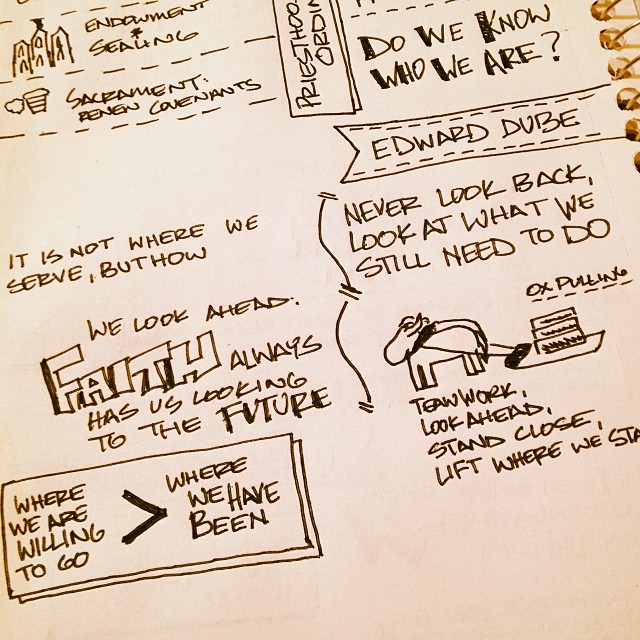 ENDOWMENT
&
SEALING
SACRAMENT:
RENEW COVENANTS
PRIESTHOOD
ORDIN
DO WE KNOW
WHO WE ARE?
EDWARD DUBE
NEVER LOOK BACK,
LOOK AT WHAT WE
STILL NEED TO DO
IT IS NOT WHERE WE
SERVE, BUT HOW
WE LOOK AHEAD:
FAITH ALWAYS
HAS US LOOKING
TO THE FUTURE
OX PULLING
TEAMWORK,
LOOK AHEAD,
STAND CLOSE,
LIFT WHERE WE STA
WHERE
WE ARE
WILLING
TO GO
>
WHERE
WE HAVE
BEEN